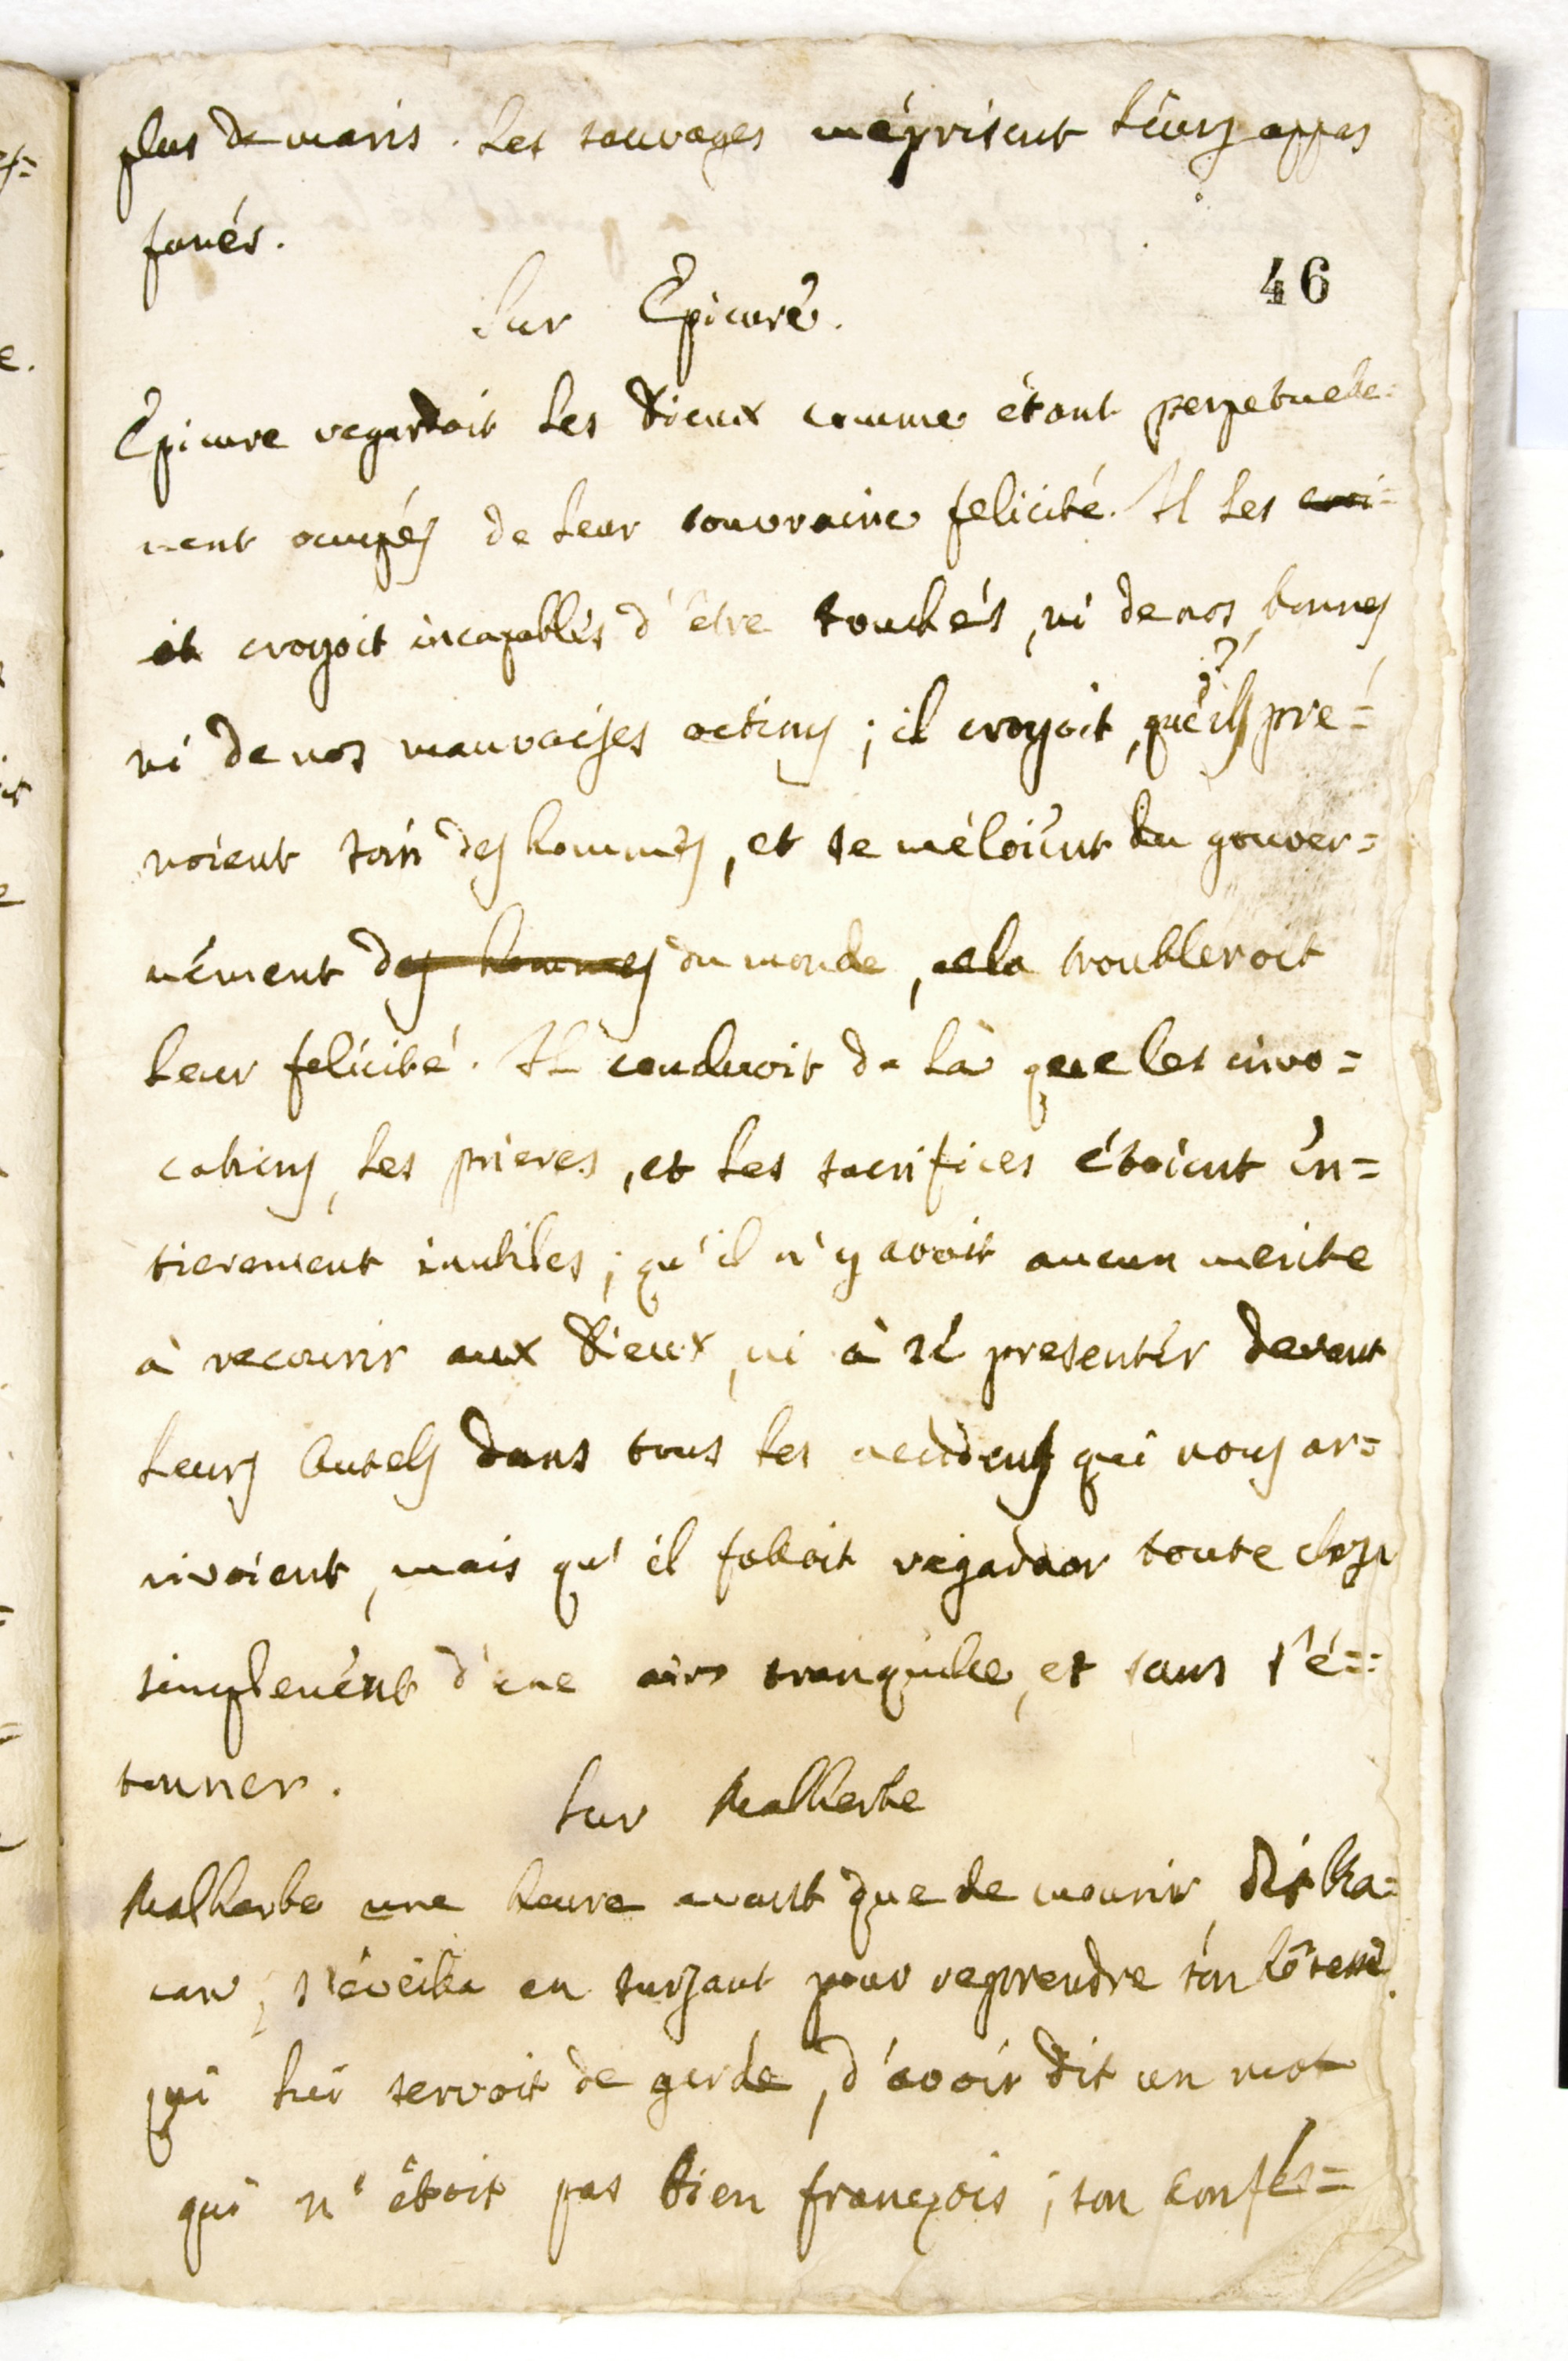 plus de maris. Les sauvages méprisent leurs appas
fanés.
46
Sur Epicure.
Epicure regardoit les Dieux comme étant perpetuele=
ment ocupés de leur souvraine felicité. Il les croi=
it croyoit incapables d'être touchés, ni de nos bonnes
ni de nos mauvaises actions ; il croyoit, que s'ils pre=
noient soin des hommes, et se méloient du gouver=
nement des hommes du monde, cela troubleroit
leur felicité. Il concluoit de là que les invo=
cations, les prieres, et les sacrifices étoient en=
tierement inutiles ; qu'il n'y avoit aucun merite
à recourir aux Dieux, ni à se presenter devant
leurs Autels dans tous les accidents qui nous ar=
rivoient, mais qu'il falloit regarder toute chose
simplement d'une air tranquille, et sans s'é=
tonner.
Sur Malherbe
Malherbe une heure avant que de mourir, dit Ra=
can, s'éveilla en sursaut pour reprendre son hôtesse
qui lui servoit de garde, d'avoir dit un mot
qui n'étoit pas bien françois ; son confes=